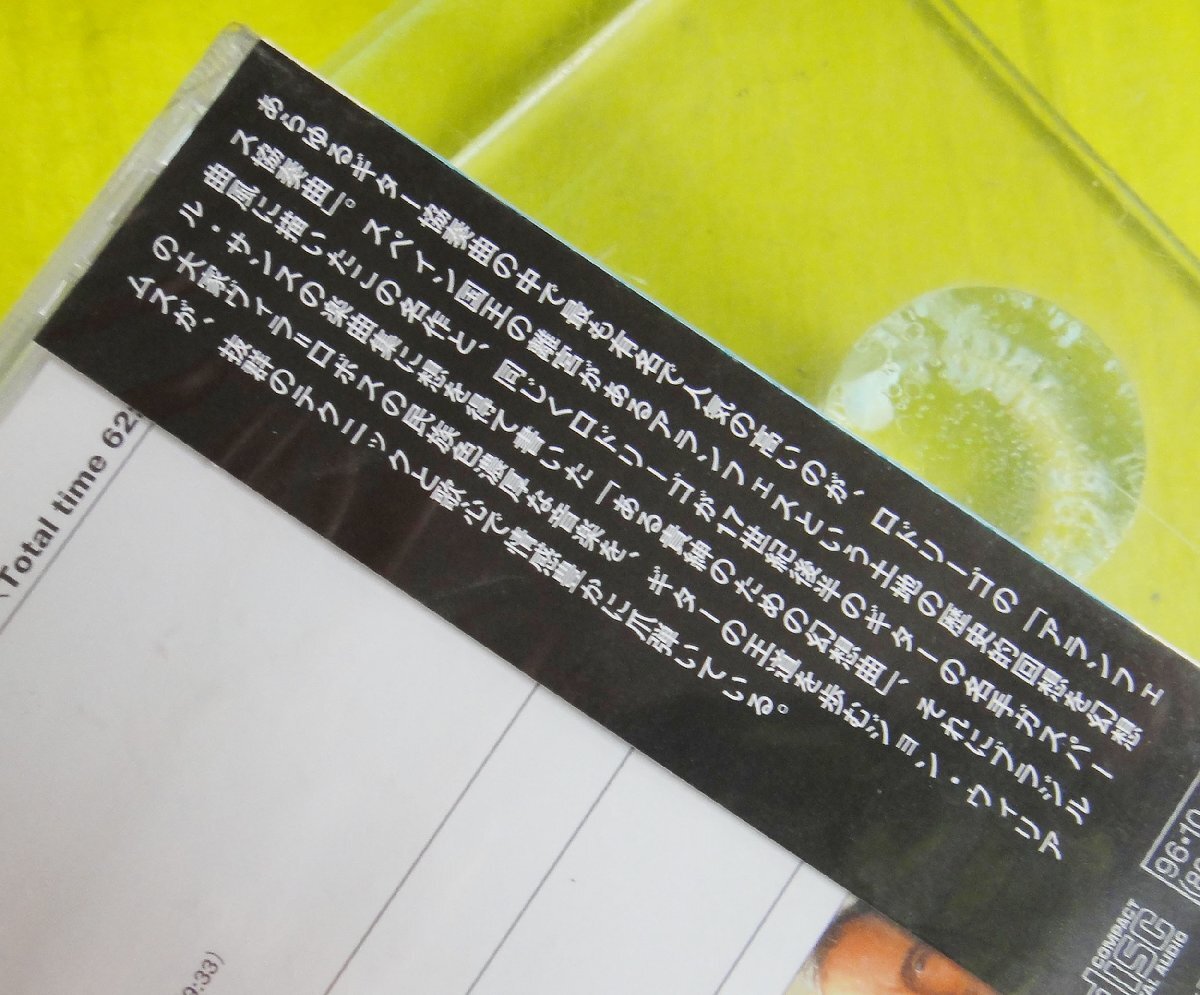 あらゆるギター協奏曲の中で最も有名で人気の高いのが、ロドリーゴの「アランフェ
ス協奏曲」。スペイン国王の離宮があるアランフェスという土地の歴史的回想を幻想
曲風に描いたこの名作と、同じくロドリーゴが17世紀後半のギターの名手ガスパー
ル・サンスの楽曲集に想を得て書いた「ある貴紳のための幻想曲」、それにブラジル
の大家ヴィラ=ロボスの民族色濃厚な音楽を、ギターの王道を歩むジョン・ウィリア
ムズが、抜群のテクニックと歌心で情感豊かに爪弾いている。
Total time 62
9:33)
96•10
COMPACT
disc
AL AUDIO